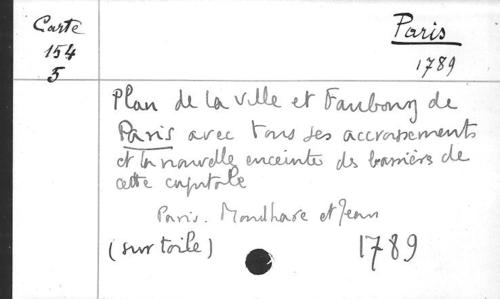 Carte
154
5
Paris
1789
Plan de la ville et Faubourg de
Paris avec tous ses accroissements
et la nouvelle enceinte des barrières de
cette capitale
Paris. Mondhare et Jean
(sur toile)
1789